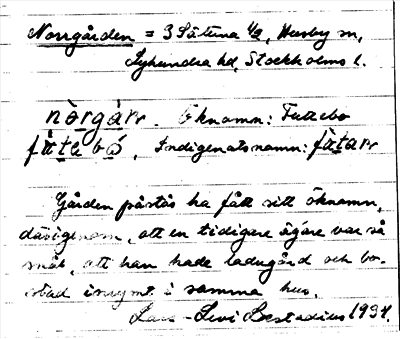 Norrgården = 3 Sätuna 1/2, Husby sn,
Lyhundra hd, Stockholms l.
nòrgàrn. Öknamn: Fattebo
fàtebó, Indigenatsnamn: fàtarr
Gården påstås ha fått sitt öknamn,
därigenom, att en tidigare ägare var så
snål, att han hade ladugård och bo-
stad inrymt i samma hus.
Lars-Levi Læstadius 1934.